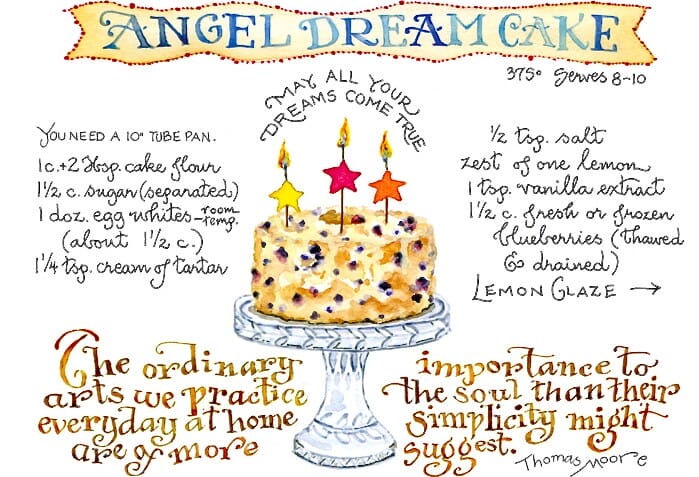 ANGEL DREAM CAKE
375° Serves 8-10
MAY ALL YOUR
DREAMS COME TRUE
YOU NEED A 10" TUBE PAN.
1 c. + 2 Tbsp. cake flour
1 1/2 c. sugar (separated)
1 doz. egg whites - room temp.
(about 1 1/2 c.)
1 1/4 tsp. cream of tartar
1/2 tsp. salt
zest of one lemon
1 tsp. vanilla extract
1 1/2 c. fresh or frozen
blueberries (thawed
& drained)
LEMON GLAZE →
The ordinary
arts we practice
everyday at home
are of more
importance to
the soul than their
simplicity might
suggest.
Thomas Moore